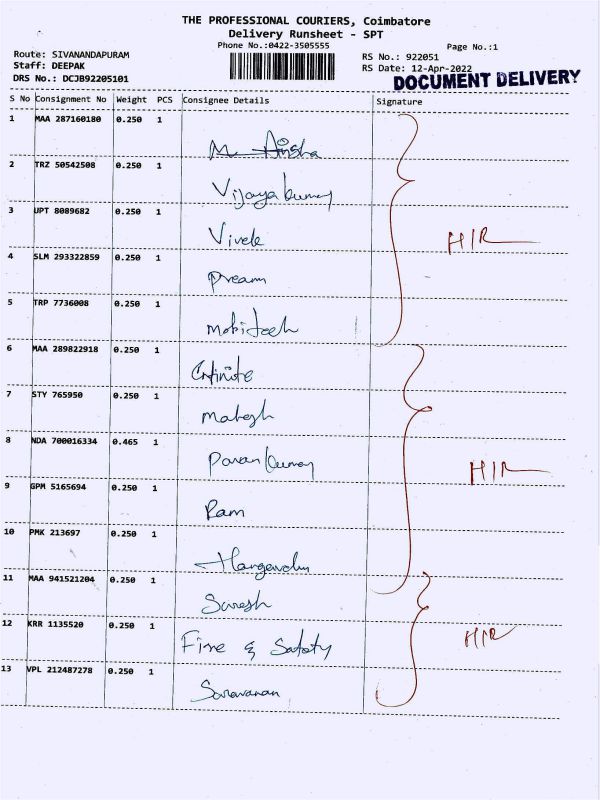 THE PROFESSIONAL COURIERS, Coimbatore
Delivery Runsheet - SPT
Phone No.:0422-3505555
Page No.:1
Route: SIVANANDAPURAM
RS No.: 922051
Staff: DEEPAK
RS Date: 12-Apr-2022
DRS No.: DCJB92205101
DOCUMENT DELIVERY
S No Consignment No Weight PCS Consignee Details Signature
1 MAA 287160180 0.250 1
M. Aisha
2 TRZ 50542508 0.250 1
Vijayakumar
3 UPT 8089682 0.250 1
Vivek
H/R
4 SLM 293322859 0.250 1
Pream
5 TRP 7736008 0.250 1
Mobitech
6 MAA 289822918 0.250 1
7 STY 765950 0.250 1
Mahesh
8 NDA 700016334 0.465 1
Pavan Kumar
H/R
9 GPM 5165694 0.250 1
Ram
10 PMK 213697 0.250 1
11 MAA 941521204 0.250 1
Suresh
12 KRR 1135520 0.250 1
Fire & Safety
H/R
13 VPL 212487278 0.250 1
Saravanan